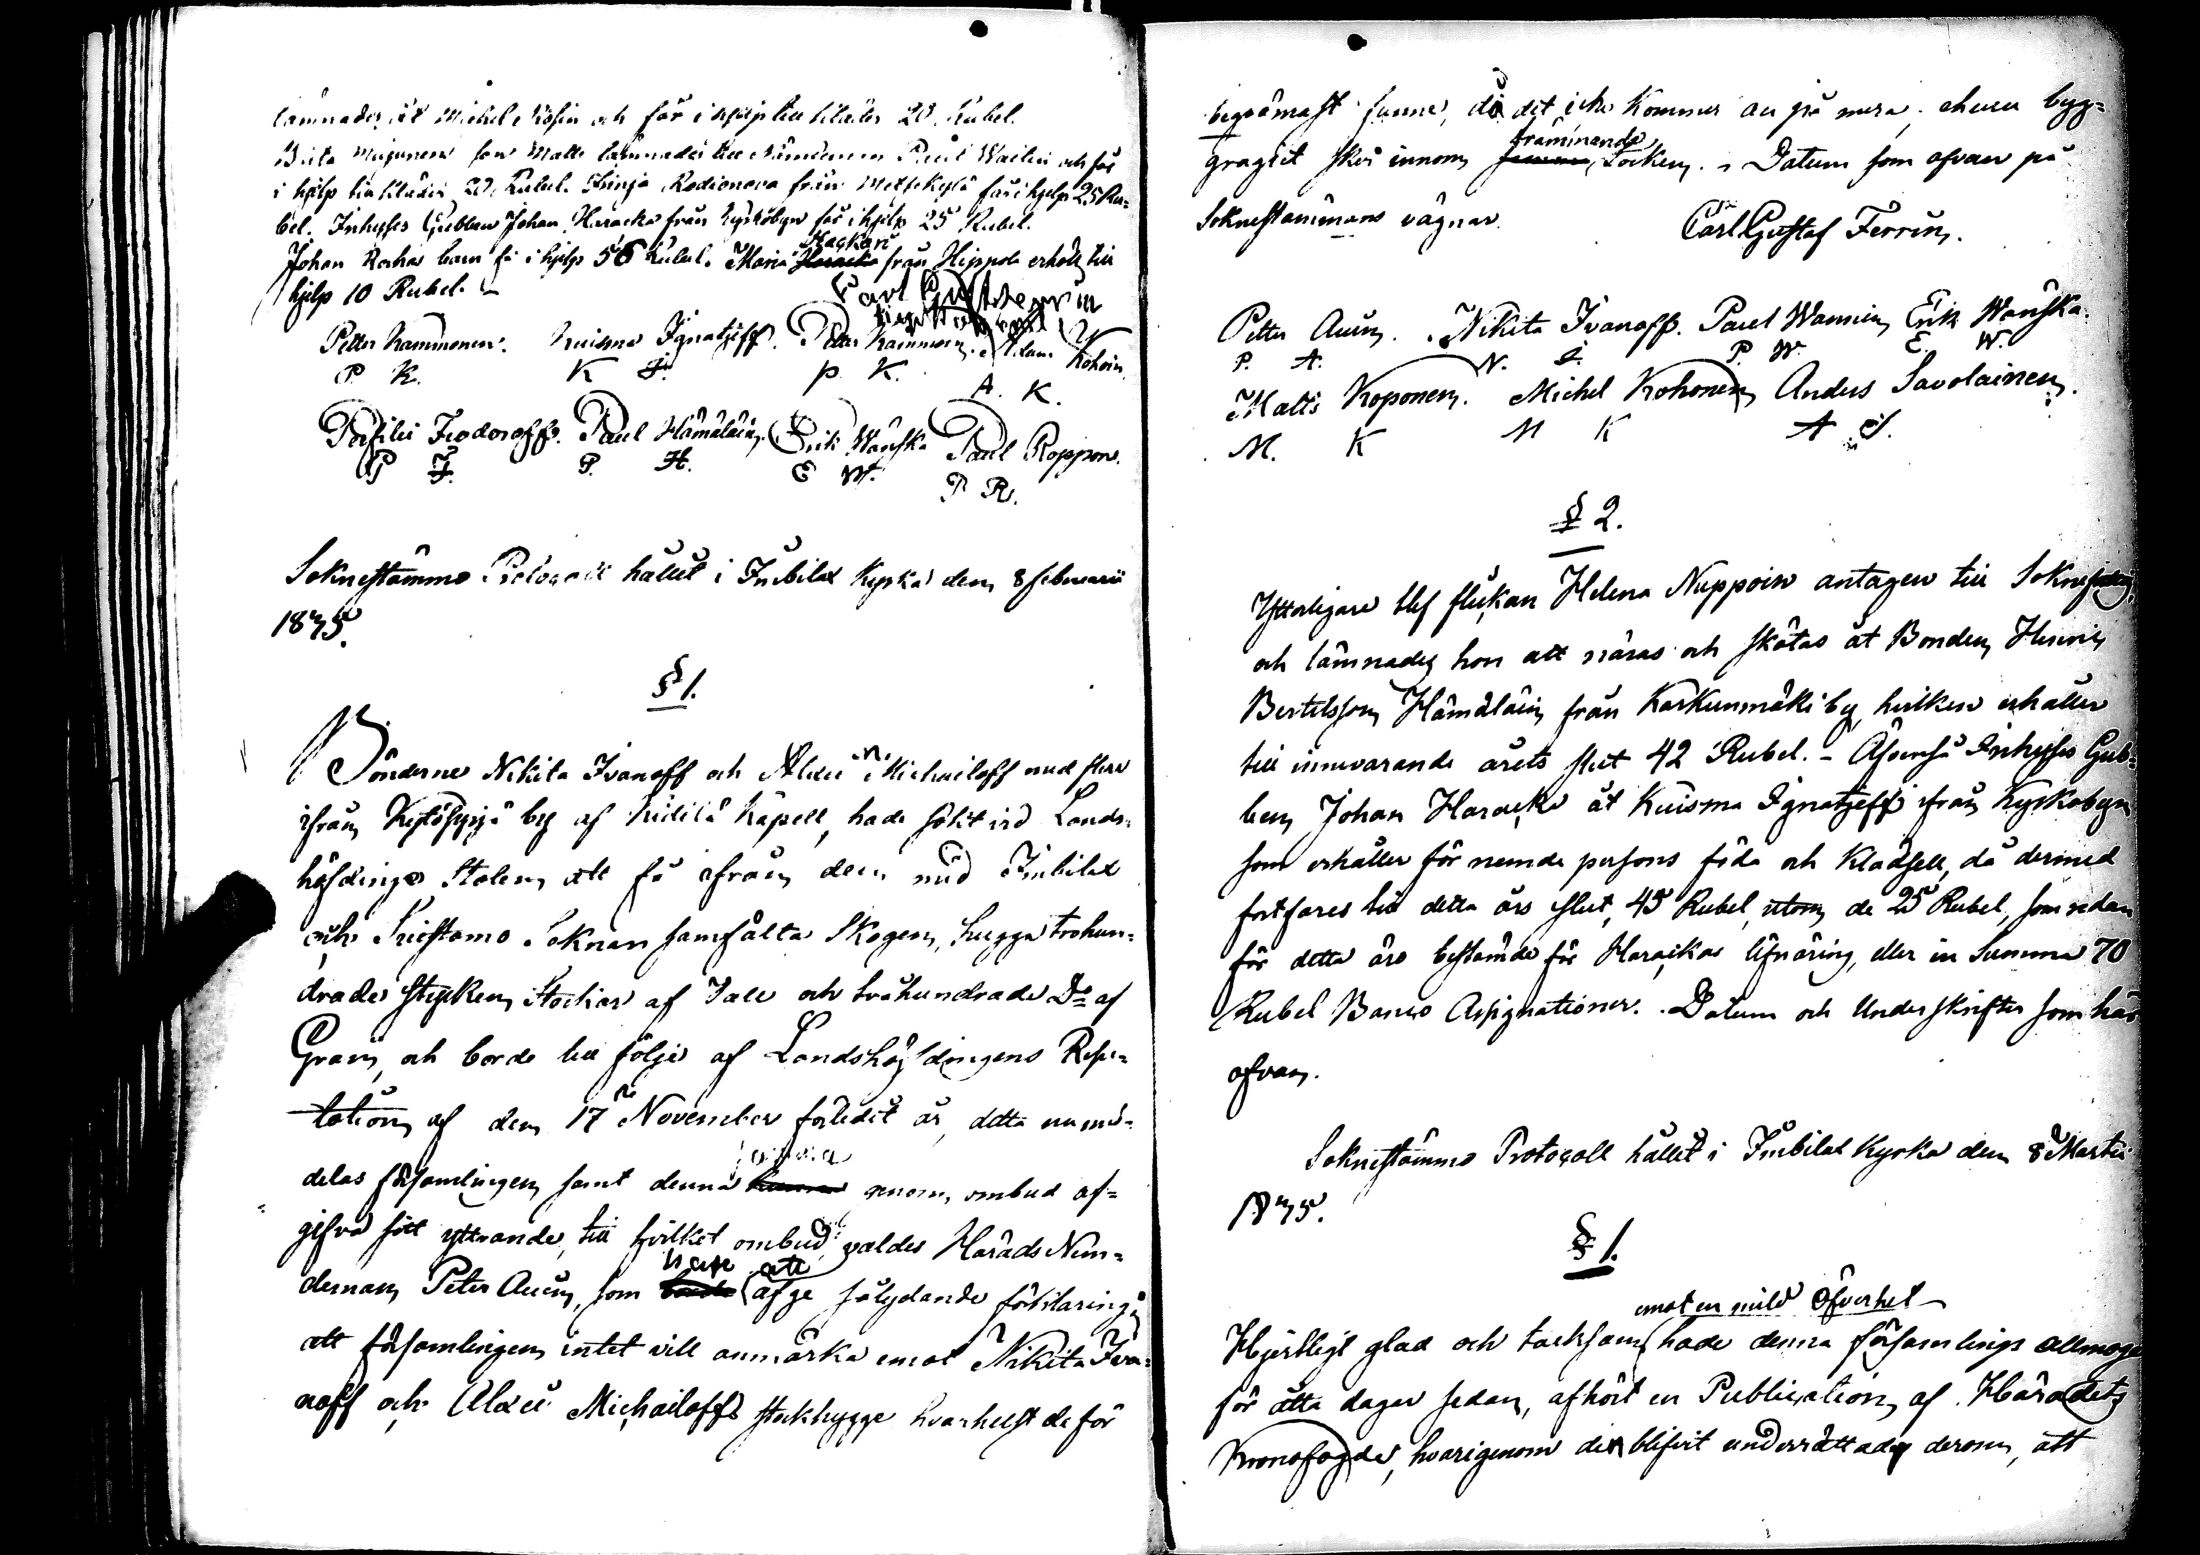 lämnades åt Michel och får i hjelp till kläder 20 Rubel.
Brita son Matts lämnades till Nämdeman Paul och får
i hjelp till kläder 20 Rubel. Irinja Rodionova från får i hjelp 25 Ru=
bel. Inhyses Gubben Johan Haracka från Kyrkobyn får i hjelp 25 Rubel.
Johan barn få i hjelp 56 Rubel. Maria från Hippola erhåller till
hjelp 10 Rubel.
Petter Kammonen. Kuisma Ignatjeff. Petter Kammonen. Adam Kohoin
P. K. K J. P. K. A. K.
Feodoroff. Paul Hämäläin, Erik Wanska Paul Roppon.
P F. P. H. E W. P R.
Soknestämmo Protocoll hållit i Imbilax Kyrka den 8 februarii
1845.
§ 1.
Bönderne Nikita Ivanoff och Alexei Michailoff med flere
ifrån by af Kidilä Kapell, hade sökt vid Lands=
höfdinge Stolen att få ifrån den med Imbilax
och Suistamo Soknar samfälta Skogen, hugga trehun=
drade stycken Stockar af Tall och tvåhundrade Do af
Gran, och borde till följe af Landshöfdingens Reso=
lution af den 17 November förledit år, detta med=
delas församlingen samt denna genom ombud af=
gifva sitt yttrande, till hvilket ombud valdes Härads Näm=
deman Peter Auin, som afge sålydande förklaring,
att församlingen intet vill anmärka emot Nikita Iva=
noff och Alexei Michailoffs stockhygge hvarhelst de för
beqvämast finne, då det icke kommer an på mera, ehuru byg=
främmande
gragtit ske innom Socken. Datum som ofvan på
Soknestämmans vägnar. Carl Gustaf Ferrin.
Petter Auin. Nikita Ivanoff. Paul Wannin, Erik Wanska.
P. A. N. J. P W. E W.
Matts Koponen. Michel Kohonen, Anders Savolainen.
M. K M K A S.
§ 2.
Ytterligare blef flickan Helena Nuppoin antagen till
och lämnades hon att näras och skötas åt Bonden Henric
Bertelsson Hämäläin från Karkunmäki by, hvilken erhåller
till innevarande årets slut 42 Rubel. - Äfvenså Inhyses Gub=
ben Johan Haracka åt Kuisma Ignatjeff ifrån Kyrkobyn
som erhåller för nemde persons föda och klädsell, då dermed
fortfares till detta års slut, 45 Rubel, utom de 25 Rubel, som redan
för detta äro bestämde för Harackas lifnäring, eller in Summa 70
Rubel Banco Assignationer. Datum och Underskrifter som här
ofvan.
Soknestämmo Protocoll hållit i Imbilax Kyrka den 8 Martii
1845.
§ 1.
emot en mild Öfverhet
Hjertligt glad och tacksam hade denna församlings allmoge
för åtta dagar sedan, afhört en Publication af Häradets
Kronofogde, hvarigenom den blifvit underrättad derom, att